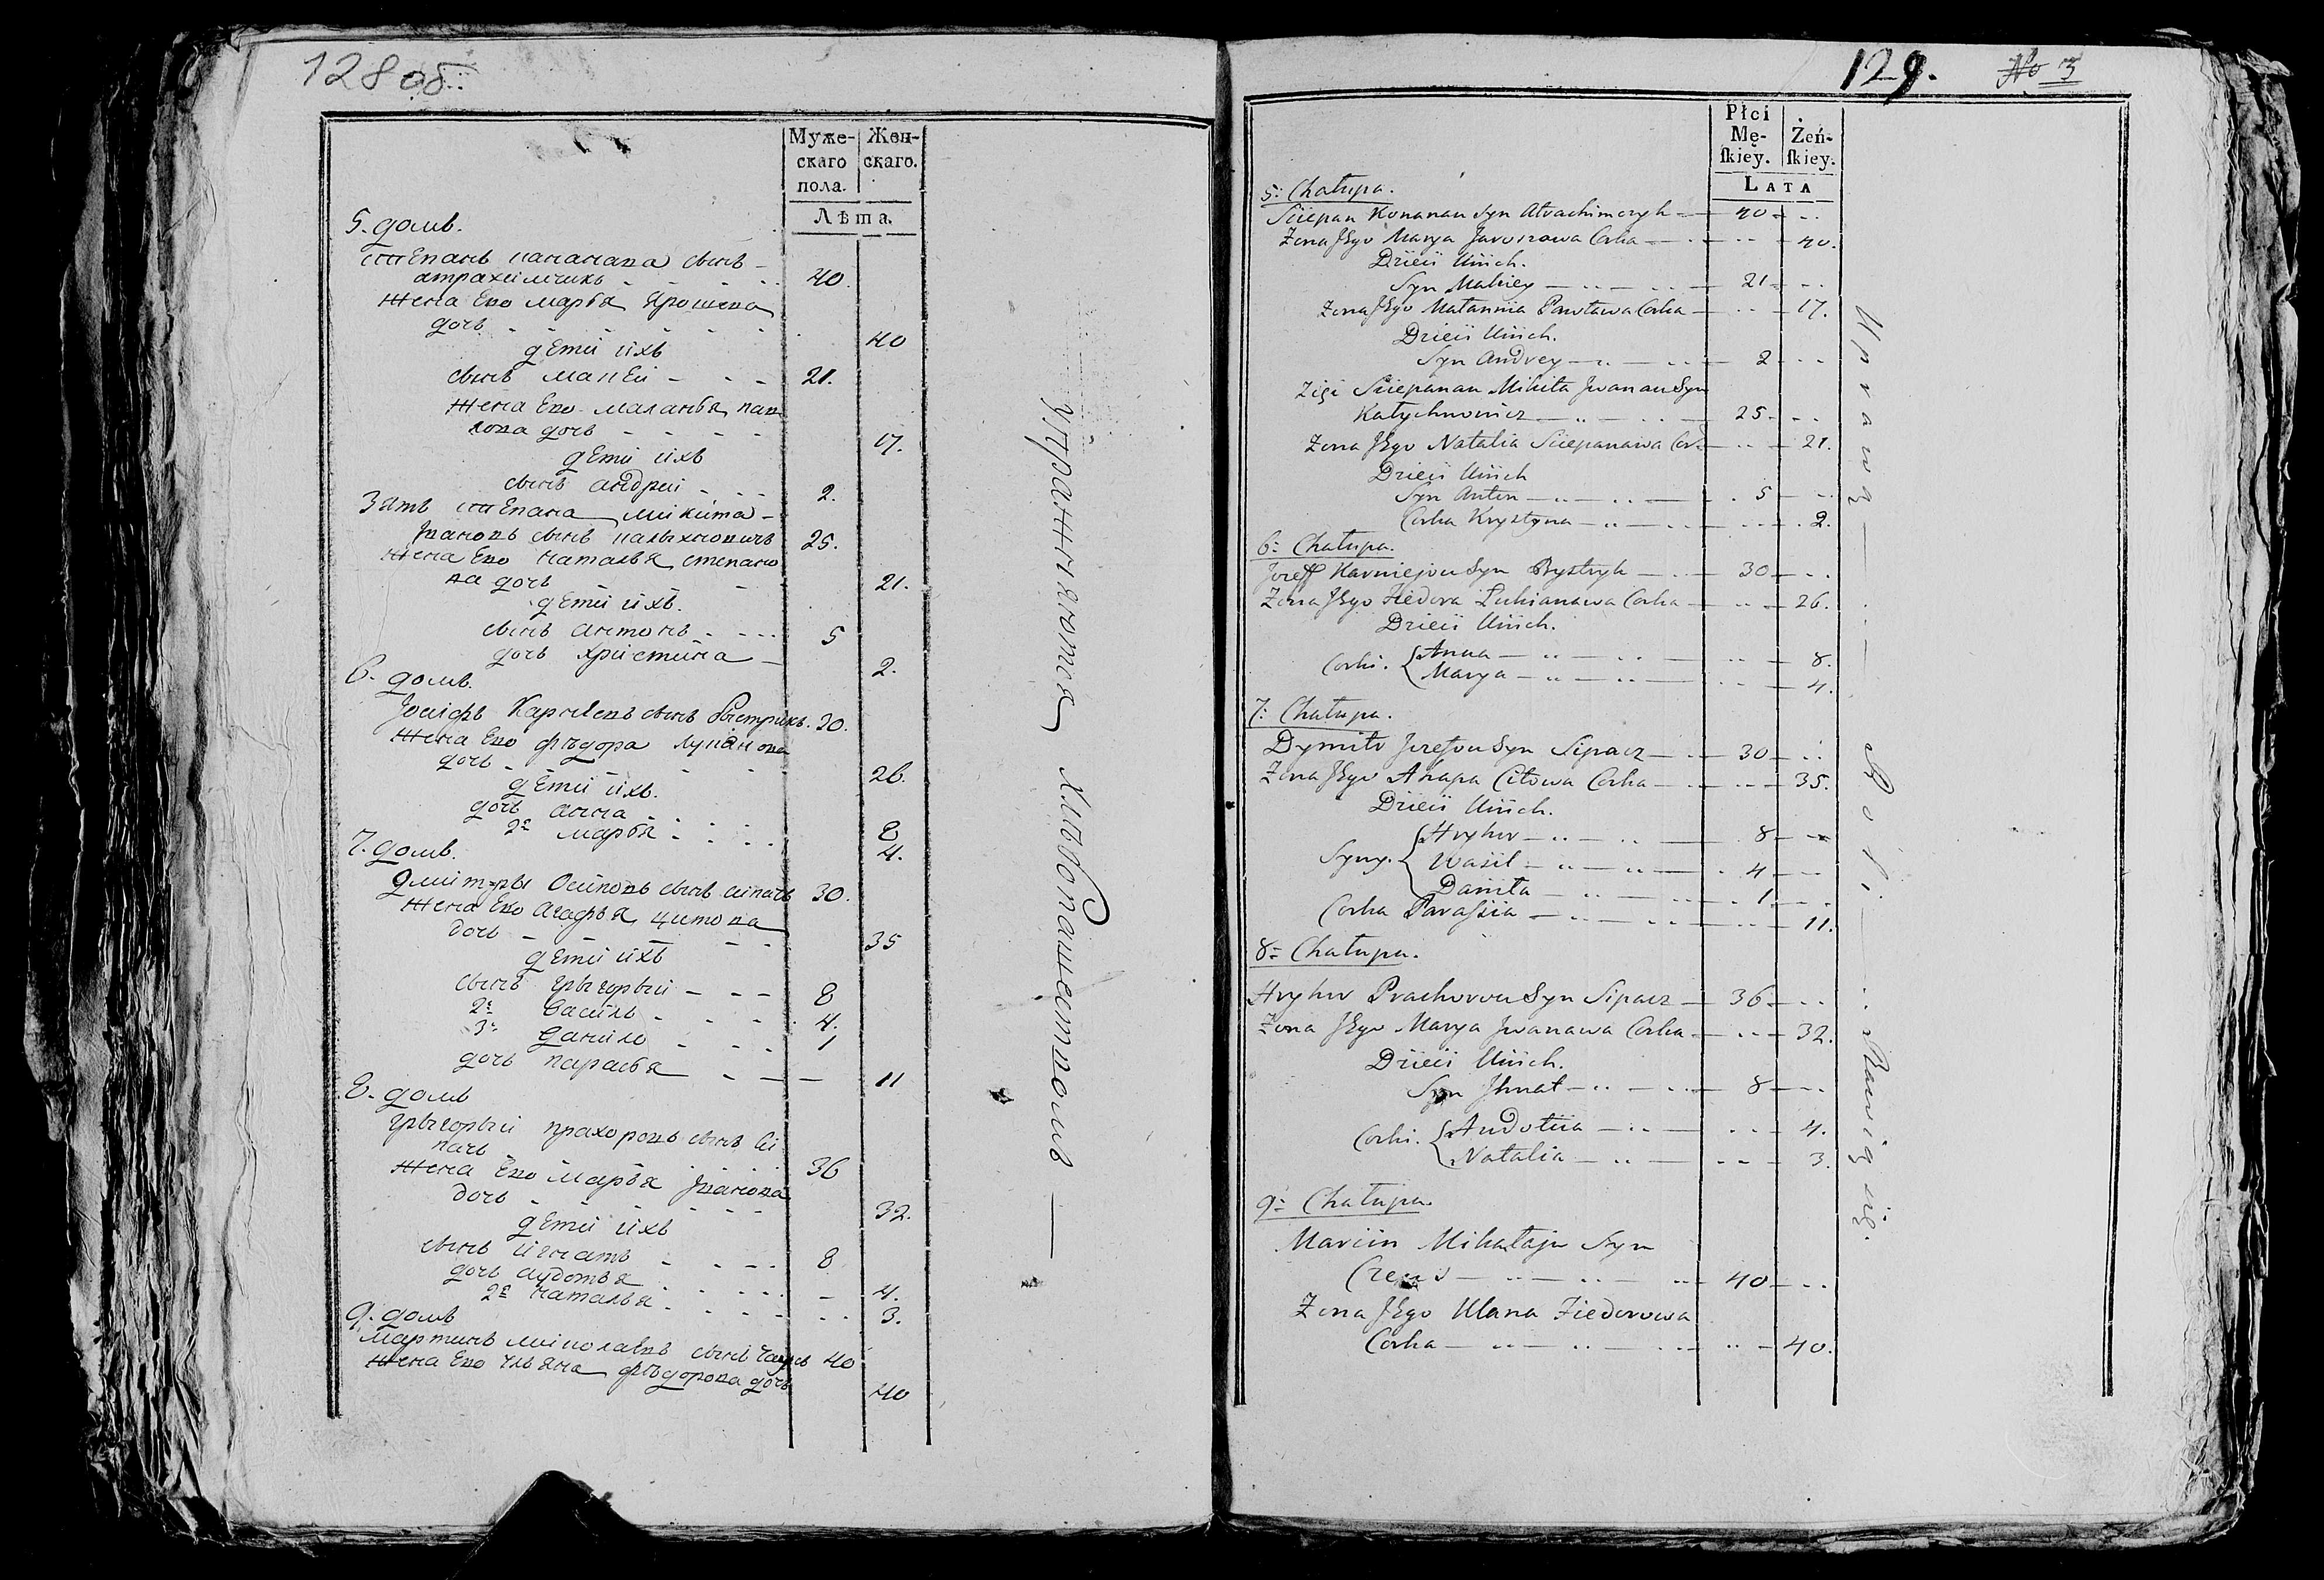 128 об.
Муже-
скаго
пола.
Жен-
скаго.
Лѣта.
5. домъ.
степанъ кананава сынъ
атрахимчикъ - - - 40.
жена Ево марья ярошева
дочь - - - - - - 40
дети ихъ
сынъ матвей - - - 21.
жена Ево маланья пав
лова дочь - - - - 17.
дети ихъ
сынъ андрей - - - 2.
Зять степана микита
Іванов сынъ калыхнович 25.
жена Ево наталья степано
ва дочь - 21.
дети ихъ.
сынъ антонъ - - - - 5
дочь христина - 2.
6. домъ.
Іосифъ Карнеевъ сынъ быстрикъ. 30.
жена Ево фѣдора лукянова
дочь - - - - - - 26.
дети ихъ.
дочь анна - - - 8
2я марья - - - - 4.
7. домъ.
дмитры Осиповъ сынъ сипачъ 30.
жена Ево агафья цитова
дочь - - - - - 35
дети ихъ
сынъ грыгорыи - - - 8
2й василь - - - - 4.
3й данило - - - - 1
дочь парасья - - - 11
8. домъ
грыгорыи прахоровъ сынъ си
пачъ - - - - - 36
жена Ево марья Іванова
дочь - - - - - - 32.
дети ихъ
сынъ игнатъ - - - - 8
дочь аудотья - - - 4.
2я наталья - - - - 3.
9. домъ
мартинъ миколаевъ сынъ 40
жена Ево ульяна фѣдорова дочь 40
упражняются хлѣбопашествомъ —
129. No 3
Płci
Mę-
ſkiey.
Żeń-
ſkiey.
LATA
5: Chałupa.
Sciepan Konanau Syn Atrachimczyk — 40 - - -
Zona Jego Marya Jaroszowa Corka — - - - 40.
Dzieci Uiich.
Syn Matwiey — 21 - - -
Zona Jego Małannia Pawłowa Corka — - - - 17.
Dzieci Uiich.
Syn Andrey — 2 - - -
Zięć Sciepanau Mikita Jwanau Syn
Kałychnowicz — 25 - - -
Zona Jego Natalia Sciepanawa Cor. — - - - 21.
Dzieci Uiich
Syn Anton — 5 - - -
Corka Krystyna — - - - 2.
6: Chałupa.
Jozeff Karniejou Syn Bystryk — 30 - - -
Zona Jego Fiedora Łukianawa Corka — - - - 26.
Dzieci Uiich.
Corki. { Anna — - - - 8.
Marya — - - - 4.
7: Chałupa.
Dymitr Jozefou Syn Sipacz — 30 - - -
Zona Jego Ahapa Citowa Corka — - - - 35.
Dzieci Uiich.
Syny. { Hryhor — 8 - - -
Wasil — 4 - - -
Daniła — 1 - - -
Corka Parassia — - - - 11.
8: Chałupa.
Hryhor Prachorou Syn Sipacz — 36 - - -
Zona Jego Marya Jwanawa Corka — - - - 32.
Dzieci Uiich.
Syn Jhnat — 8 - - -
Corki. { Audotia — - - - 4.
Natalia — - - - 3.
9: Chałupa.
Marcin Mikałaju Syn
— 40 - - -
Zona Jego Ulana Fiedorowa
Corka — - - - 40.
Uprawą — Roli — Bawią się.